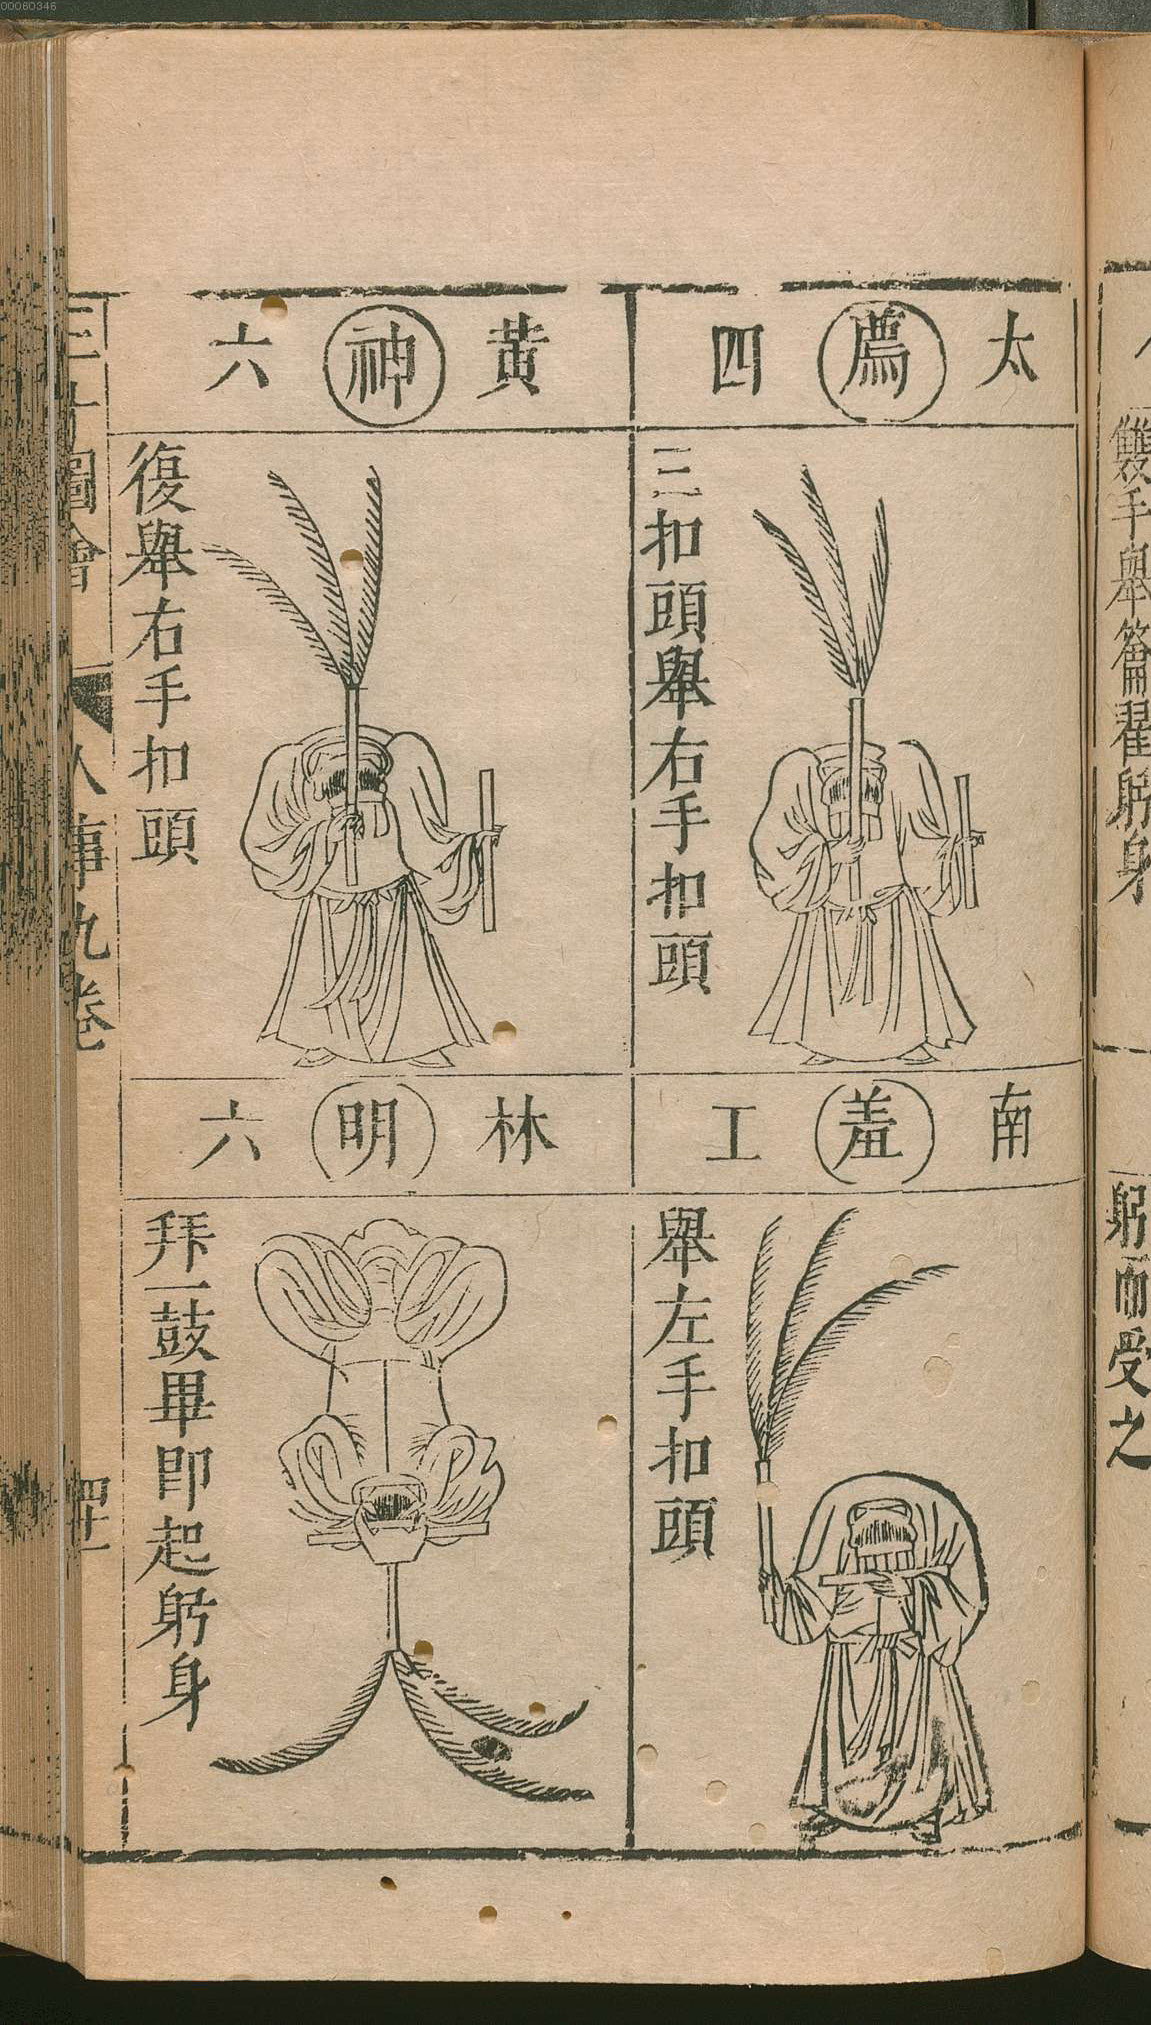 00060346
太 薦 四
三扣頭舉右手扣頭
南 羞 工
舉左手扣頭
黃 神 六
復舉右手扣頭
林 明 六
拜一鼓畢即起躬身
三才圖會 人事九卷
雙手舉籥翟躬身
躬而受之